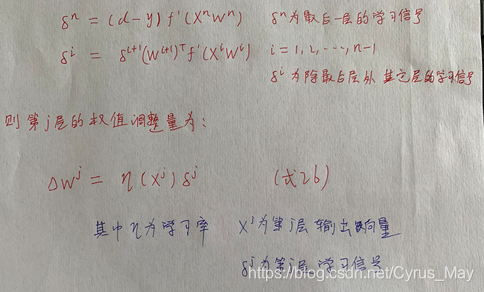 δⁿ = (d-y) f'(XⁿWⁿ) δⁿ为最后一层的学习信号
δⁱ = δⁱ⁺¹(Wⁱ⁺¹)ᵀf'(XⁱWⁱ) i=1,2,……,n-1
δⁱ为除最后层外其它层的学习信号
则第j层的权值调整量为：
ΔWʲ = η(Xʲ)δʲ (式26)
其中η为学习率 Xʲ为第j层输出向量
δʲ为第j层学习信号
https://blog.csdn.net/Cyrus_May